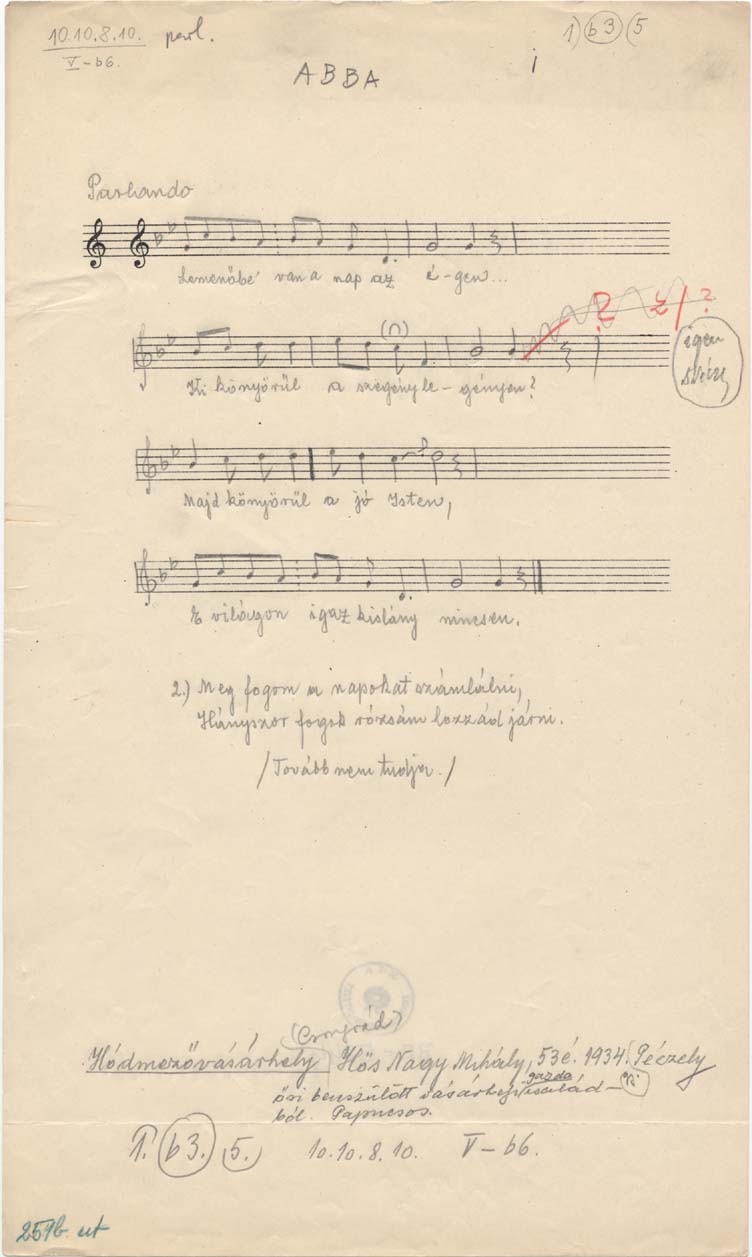 10.10.8.10. parl.
V–b6.
1) b3 (5
ABBA
i
Parlando
Lemenőbe' van a nap az é-gen...
? ?
igen
Ki könyörül a szegényle-gényen?
Majd könyörül a jó Isten,
E világon igaz kislány nincsen.
2.) Meg fogom a napokat számlálni,
Hányszor fogok rózsám hozzád járni.
/Tovább nem tudja./
(Csongrád)
Hódmezővásárhely Hős Nagy Mihály, 53é. 1934. Péczely
gazda
ősi benszülött vásárhelyi család–
ból. Papucsos.
1. b3. 5. 10.10.8.10. V–b6.